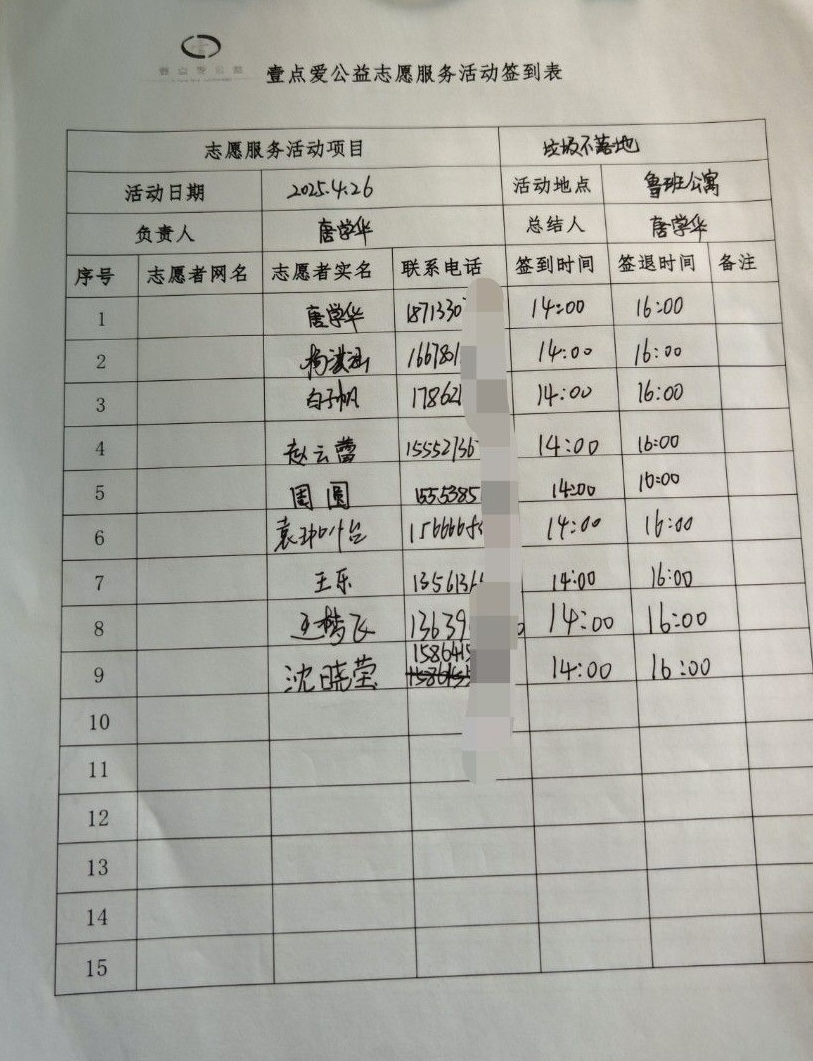 壹点爱公益志愿服务活动签到表
志愿服务活动项目 垃圾不落地
活动日期 2025.4.26 活动地点 鲁班公寓
负责人 唐学华 总结人 唐学华
序号 志愿者网名 志愿者实名 联系电话 签到时间 签退时间 备注
1 唐学华 1871330 14:00 16:00
2 166781 14:00 16:00
3 白子帆 17862 14:00 16:00
4 赵云蕾 15552736 14:00 16:00
5 周圆 1555385 14:00 16:00
6 1566668 14:00 16:00
7 王乐 1356136 14:00 16:00
8 王梦飞 13639 14:00 16:00
9 沈晓莹 1586415 14:00 16:00
10
11
12
13
14
15